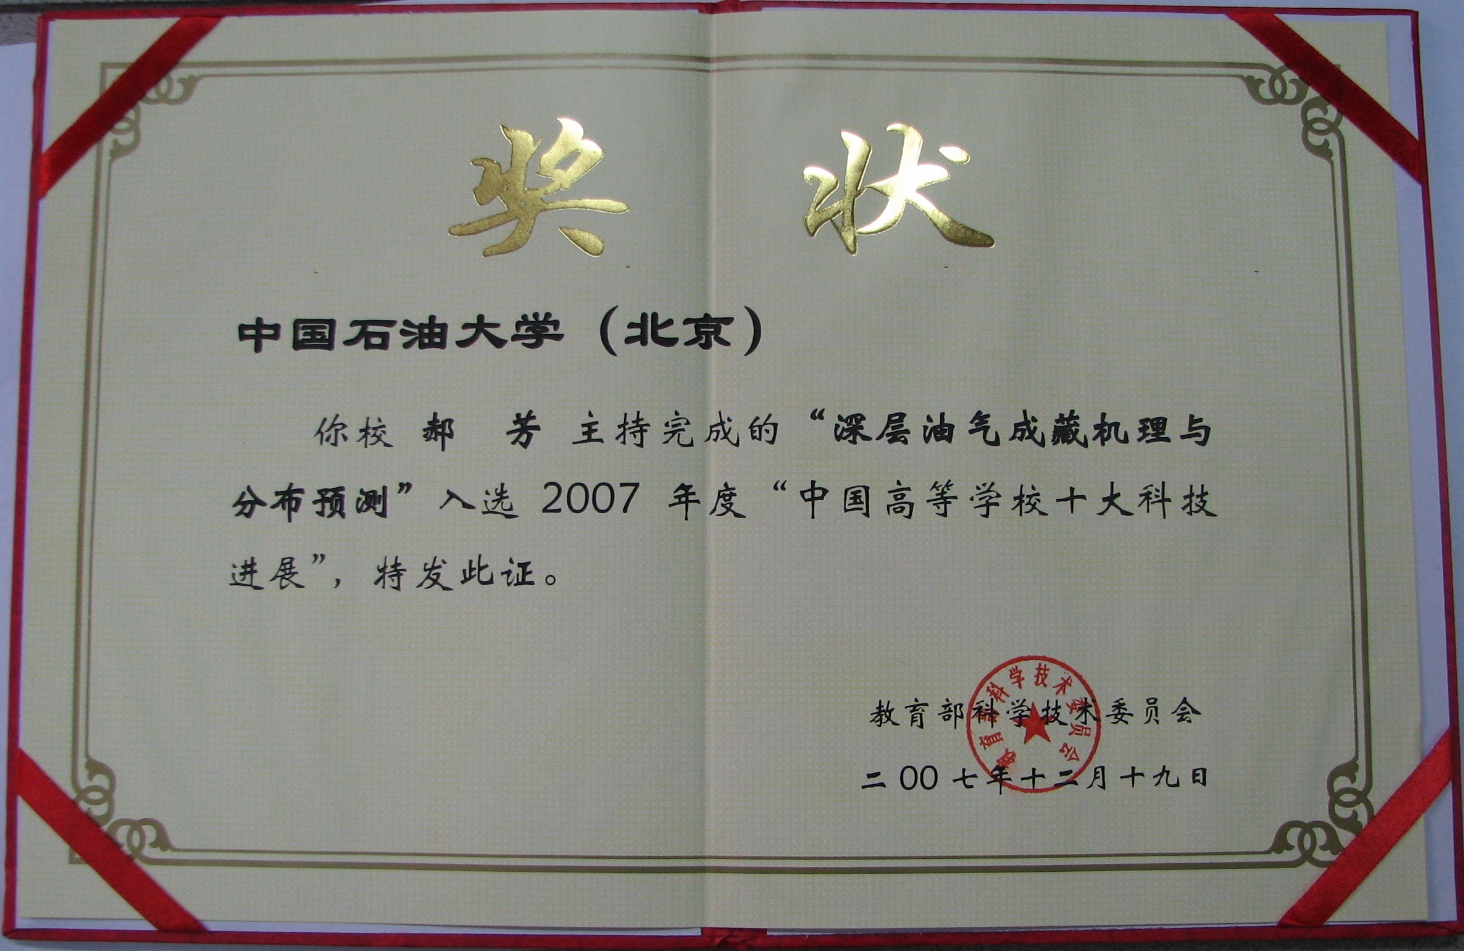 奖 状
中国石油大学（北京）
你校 郝 芳 主持完成的“深层油气成藏机理与
分布预测”入选 2007 年度“中国高等学校十大科技
进展”，特发此证。
教育部科学技术委员会
二00七年十二月十九日
教育部科学技术委员会